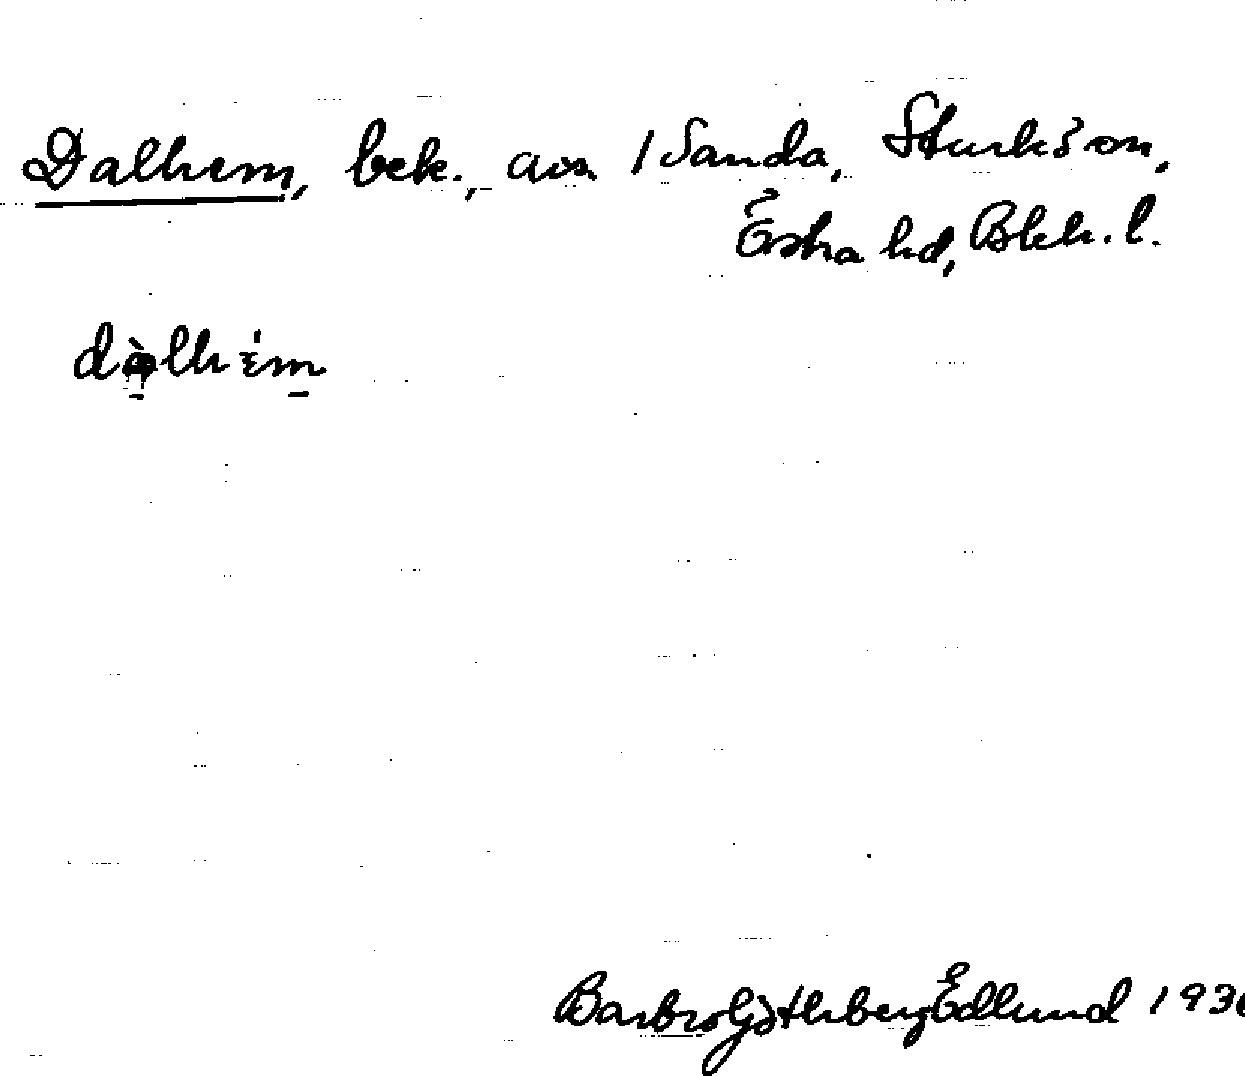 Dalhem, bek., avs. 1 Sanda, Sturkö sn,
Östra hd, Blek. l.
dàlhèm
Barbro Göthberg Edlund 1936